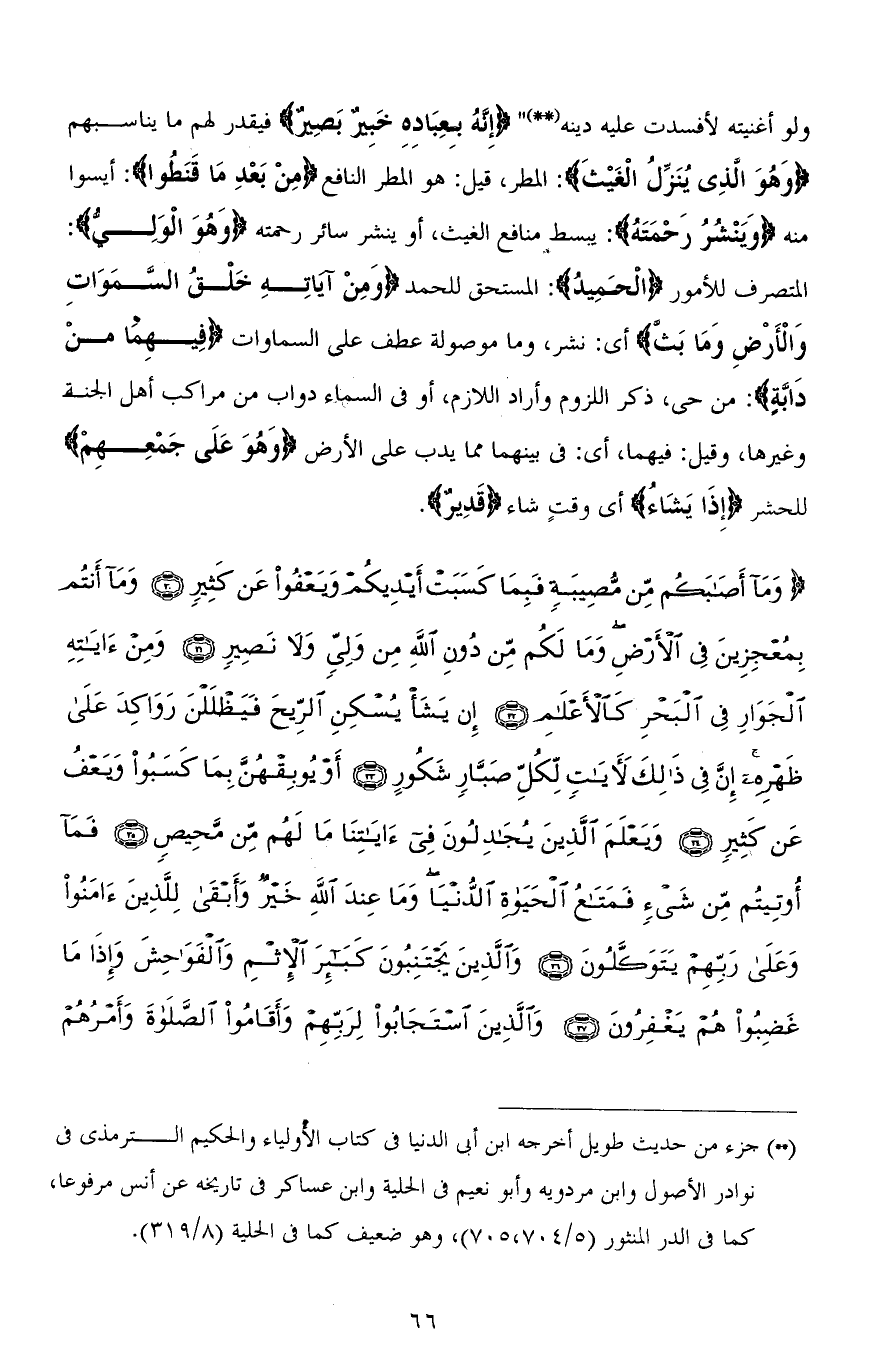 ولو أغنيته لأفسدت عليه دينه(**)" ﴿إِنَّهُ بِعِبَادِهِ خَبِيرٌ بَصِيرٌ﴾ فيقدر لهم ما يناســـبهم
﴿وَهُوَ الَّذِى يُنَزِّلُ الْغَيْثَ﴾: المطر، قيل: هو المطر النافع ﴿مِنْ بَعْدِ مَا قَنَطُوا﴾: أيسوا
منه ﴿وَيَنْشُرُ رَحْمَتَهُ﴾: يبسط منافع الغيث، أو ينشر سائر رحمته ﴿وَهُوَ الْوَلِـــــيُّ﴾:
المتصرف للأمور ﴿الْحَمِيدُ﴾: المستحق للحمد ﴿وَمِنْ آيَاتِـــهِ خَلْـــقُ السَّـــمَوَاتِ
وَالْأَرْضِ وَمَا بَثَّ﴾ أى: نشر، وما موصولة عطف على السماوات ﴿فِيـــهِمَا مِـــنْ
دَابَّةٍ﴾: من حى، ذكر اللزوم وأراد اللازم، أو فى السماء دواب من مراكب أهل الجنـة
وغيرها، وقيل: فيهما، أى: فى بينهما مما يدب على الأرض ﴿وَهُوَ عَلَى جَمْعِـــــهِمْ﴾
للحشر ﴿إِذَا يَشَاءُ﴾ أى وقتٍ شاء ﴿قَدِيرٌ﴾.
﴿ وَمَآ أَصَـٰبَكُم مِّن مُّصِيبَةٍ فَبِمَا كَسَبَتْ أَيْدِيكُمْ وَيَعْفُوا۟ عَن كَثِيرٍ ٣٠ وَمَآ أَنتُم
بِمُعْجِزِينَ فِى ٱلْأَرْضِ ۖ وَمَا لَكُم مِّن دُونِ ٱللَّهِ مِن وَلِىٍّ وَلَا نَصِيرٍ ٣١ وَمِنْ ءَايَـٰتِهِ
ٱلْجَوَارِ فِى ٱلْبَحْرِ كَٱلْأَعْلَـٰمِ ٣٢ إِن يَشَأْ يُسْكِنِ ٱلرِّيحَ فَيَظْلَلْنَ رَوَاكِدَ عَلَىٰ
ظَهْرِهِۦٓ ۚ إِنَّ فِى ذَٰلِكَ لَـَٔايَـٰتٍ لِّكُلِّ صَبَّارٍ شَكُورٍ ٣٣ أَوْ يُوبِقْهُنَّ بِمَا كَسَبُوا۟ وَيَعْفُ
عَن كَثِيرٍ ٣٤ وَيَعْلَمَ ٱلَّذِينَ يُجَـٰدِلُونَ فِىٓ ءَايَـٰتِنَا مَا لَهُم مِّن مَّحِيصٍ ٣٥ فَمَآ
أُوتِيتُم مِّن شَىْءٍ فَمَتَـٰعُ ٱلْحَيَوٰةِ ٱلدُّنْيَا ۖ وَمَا عِندَ ٱللَّهِ خَيْرٌ وَأَبْقَىٰ لِلَّذِينَ ءَامَنُوا۟
وَعَلَىٰ رَبِّهِمْ يَتَوَكَّلُونَ ٣٦ وَٱلَّذِينَ يَجْتَنِبُونَ كَبَـٰٓئِرَ ٱلْإِثْمِ وَٱلْفَوَٰحِشَ وَإِذَا مَا
غَضِبُوا۟ هُمْ يَغْفِرُونَ ٣٧ وَٱلَّذِينَ ٱسْتَجَابُوا۟ لِرَبِّهِمْ وَأَقَامُوا۟ ٱلصَّلَوٰةَ وَأَمْرُهُمْ
(**) جزء من حديث طويل أخرجه ابن أبى الدنيا فى كتاب الأولياء والحكيم الـــــترمذى فى
نوادر الأصول وابن مردويه وأبو نعيم فى الحلية وابن عساكر فى تاريخه عن أنس مرفوعا،
كما فى الدر المنثور (٧٠٥،٧٠٤/٥)، وهو ضعيف كما فى الحلية (٣١٩/٨).
٦٦